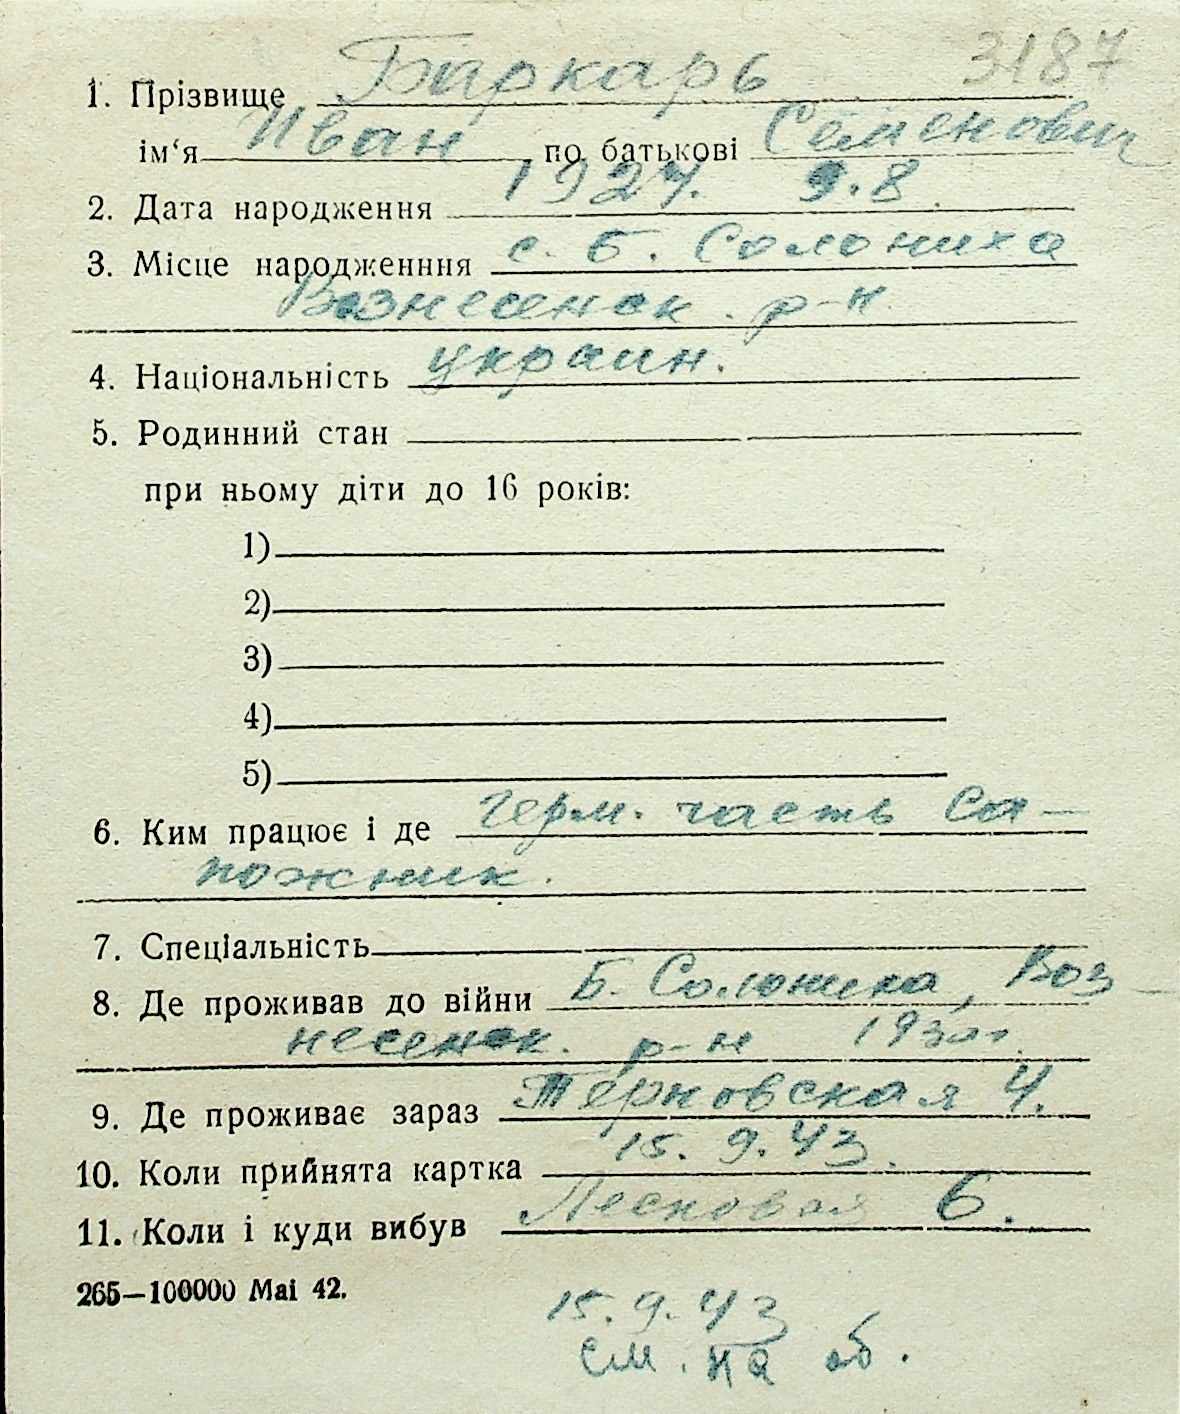 3187
1. Прізвище Баркарь
ім‘я Иван по батькові Семенович
2. Дата народження 1927. 9.8
3. Місце народженння с. Б. Солониха
Вознесенск. р-н.
4. Національність украин.
5. Родинний стан
при ньому діти до 16 років:
1)
2)
3)
4)
5)
6. Ким працює і де герм. часть Са-
пожник.
7. Спеціальність
8. Де проживав до війни Б. Солониха, Воз-
несенск. р-н
9. Де проживає зараз Терновская 4.
10. Коли прийнята картка 15. 9. 43.
11. Коли і куди вибув Песковая 6.
265—100000 Mai 42.
15. 9. 43
см. на об.